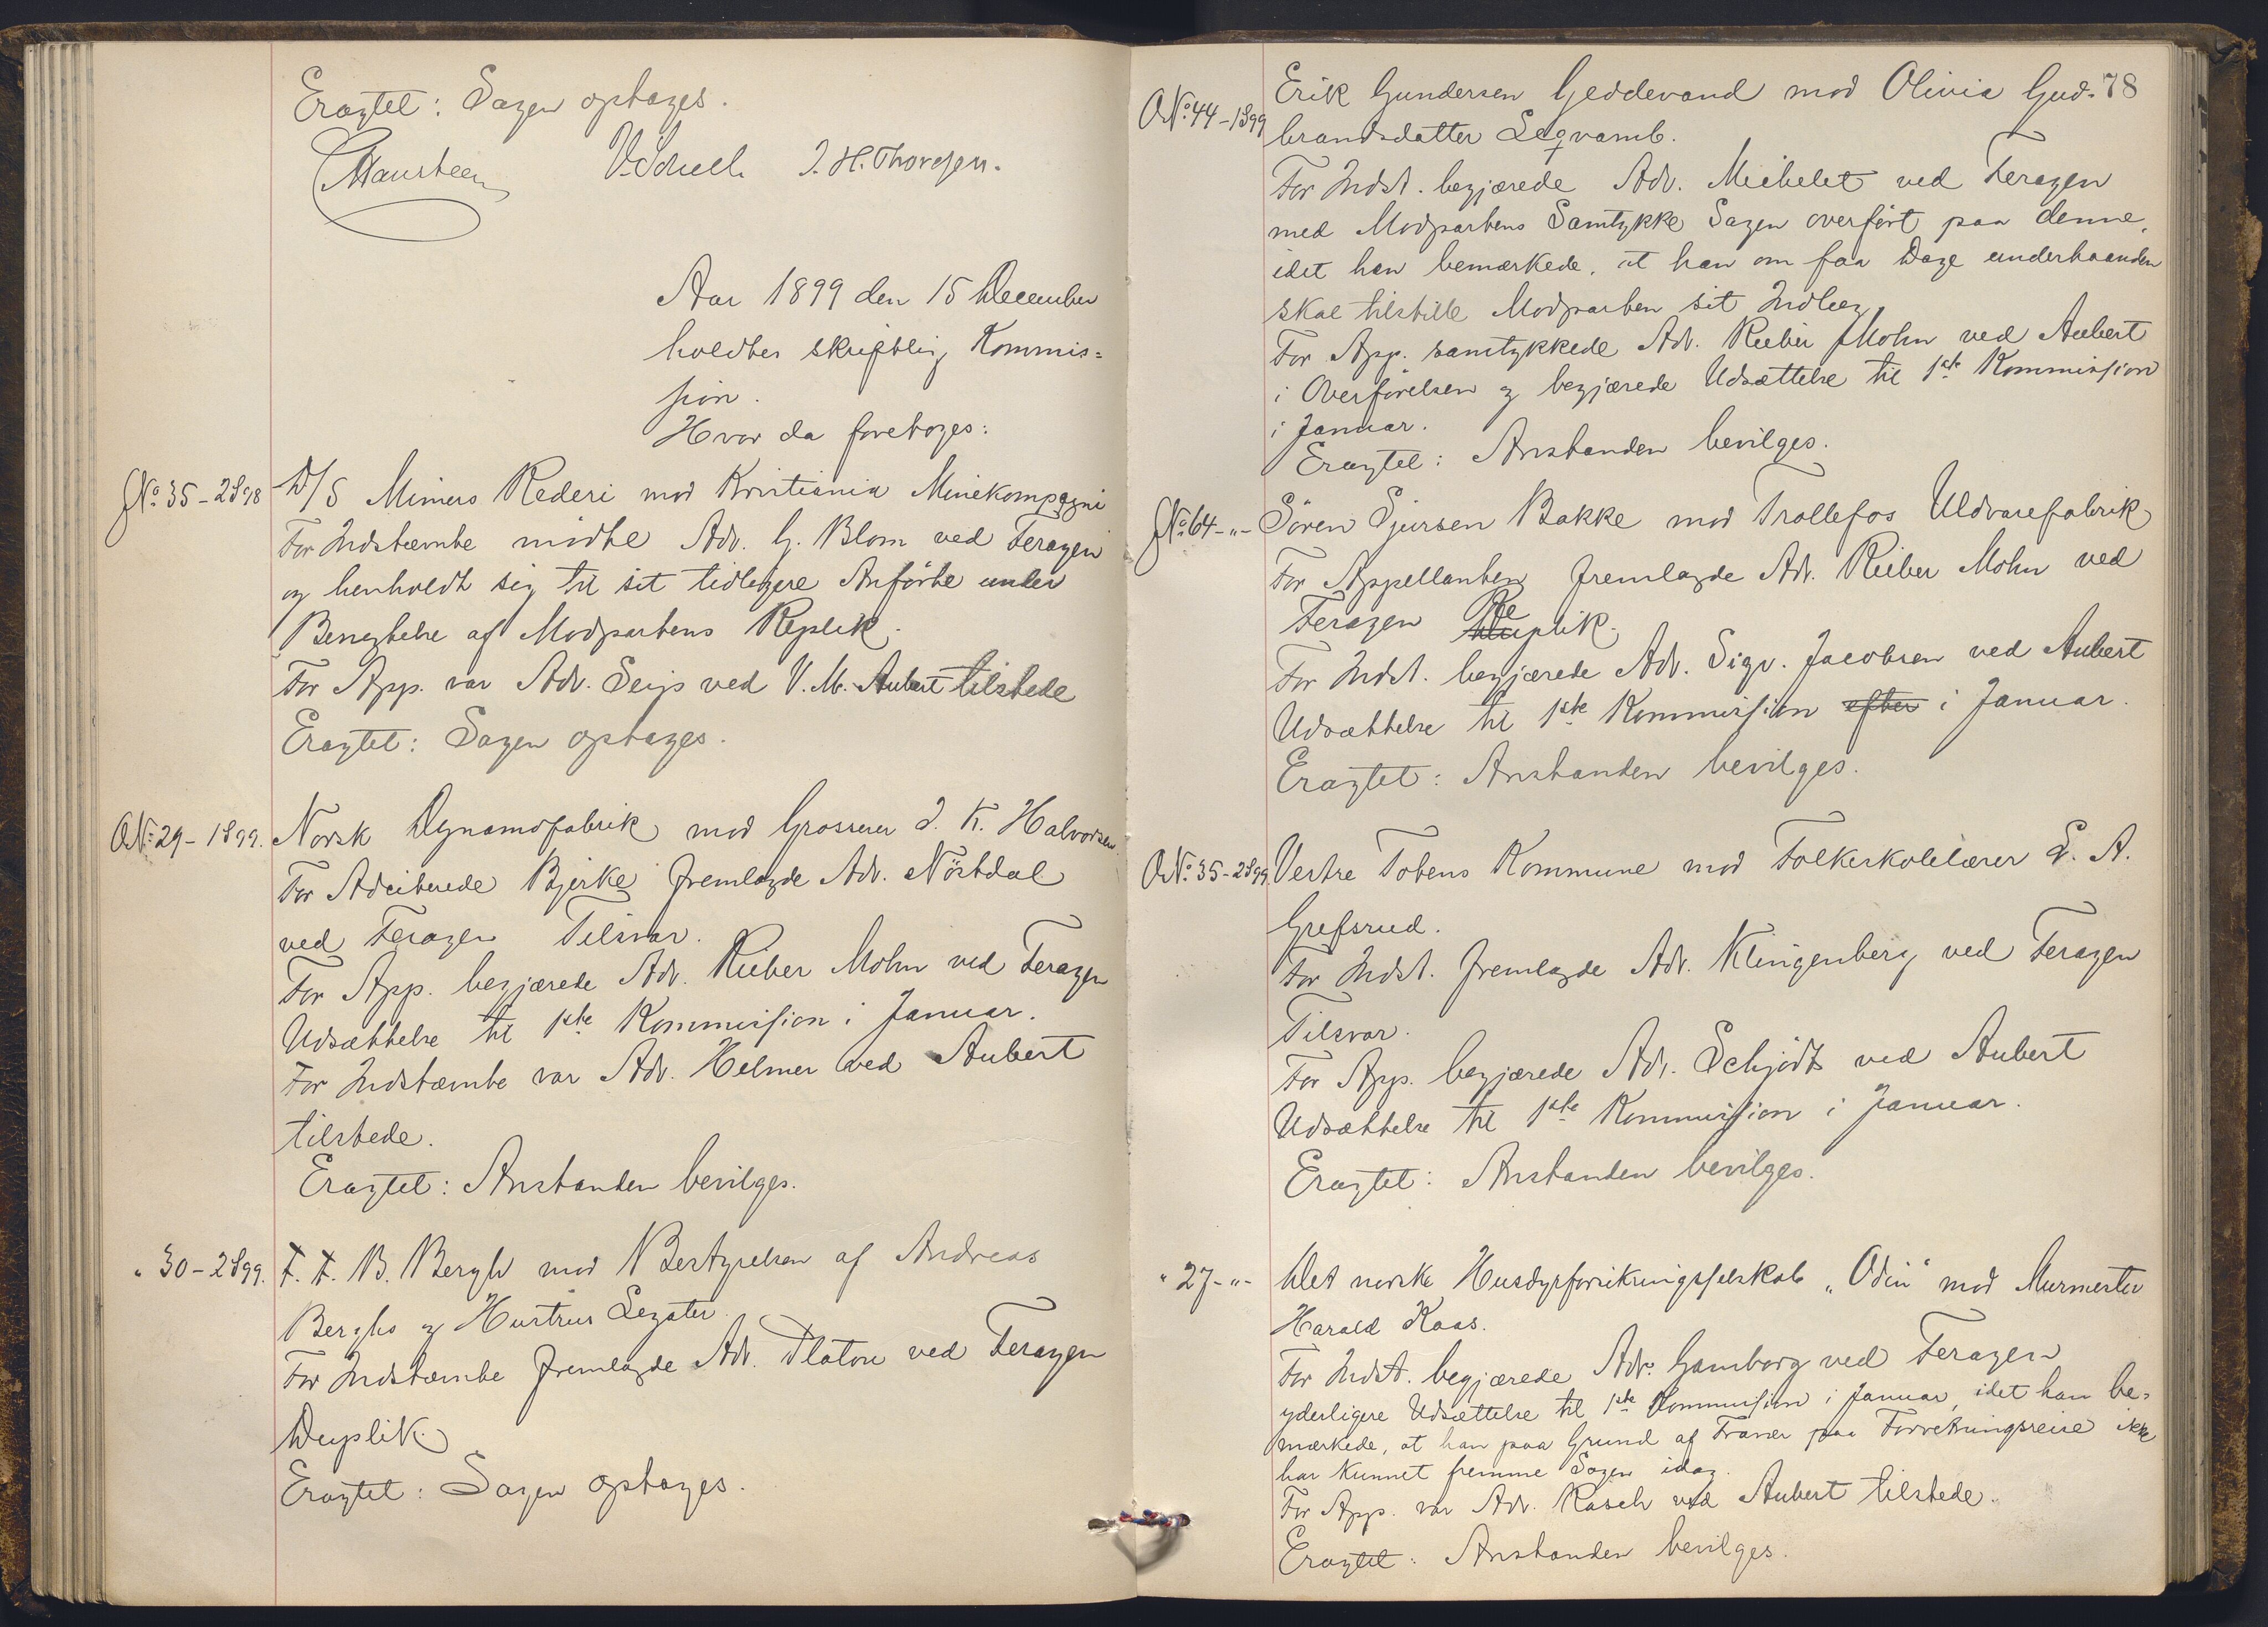 Eragtet: Sagen optages.
V. Scheel. J. H. Thoresen.
Aar 1899 den 15 December
holdtes skriftlig Kommis=
sion.
Hvor da foretoges:
No 35-2S98 D/S Mimers Rederi mod Kristiania Minekompagni
For Indstævnte mødte Adv. G. Blom ved Feragen
og henholdt sig til sit tidligere Anførte under
Benegtelse af Modpartens Replik.
For App. var Adv. Seip ved V. M. Aubert tilstede
Eragtet: Sagen optages.
No 29-1S99. Norsk Dynamofabrik mod Grosserer J. K. Halvorsen
For Adciterede Bjerke fremlagde Adv. Nöstdal
ved Feragen Tilsvar.
For App. begjærede Adv. Rieber Mohn ved Feragen
Udsættelse til 1ste Kommission i Januar.
For Indstævnte var Adv. Helmer ved Aubert
tilstede.
Eragtet: Anstanden bevilges.
" 30-2S99. F. F. B. Bergh mod Bestyrelsen af Andreas
Berghs og Hustrus Legater.
For Indstævnte fremlagde Adv. Platou ved Feragen
Duplik.
Eragtet: Sagen optages.
78
No 44-1S99 Erik Gundersen Geddevand mod Olivia Gud=
brandsdatter Legvamb.
For Indst. begjærede Adv. Michelet ved Feragen
med Modpartens Samtykke Sagen overført paa denne,
idet han bemærkede, at han om faa Dage underhaanden
skal tilstille Modparten sit Indlæg.
For App. samtykkede Adv. Rieber Mohn ved Aubert
i Overførelsen og begjærede Udsættelse til 1ste Kommission
i Januar.
Eragtet: Anstanden bevilges.
No 64-"- Sören Sjursen Bakke mod Trollefos Uldvarefabrik
For Appellanten fremlagde Adv. Rieber Mohn ved
Feragen Replik.
For Indst. begjærede Adv. Sigv. Jacobsen ved Aubert
Udsættelse til 1ste Kommission efter i Januar.
Eragtet: Anstanden bevilges.
No 35-2S99 Vestre Totens Kommune mod Folkeskolelærer L. A.
Grefsrud.
For Indst. fremlagde Adv. Klingenberg ved Feragen
Tilsvar.
For App. begjærede Adv. Schjödt ved Aubert
Udsættelse til 1ste Kommission i Januar.
Eragtet: Anstanden bevilges.
" 27-"- Det norske Husdyrforsikringsselskab "Odin" mod Murmester
Harald Kaas.
For Indst. begjærede Adv. Gamborg ved Feragen
yderligere Udsættelse til 1ste Kommission i Januar, idet han be=
mærkede, at han paa Grund af Fravær paa Forretningsreise ikke
har kunnet fremme Sagen idag.
For App. var Adv. Rasch ved Aubert tilstede.
Eragtet: Anstanden bevilges.